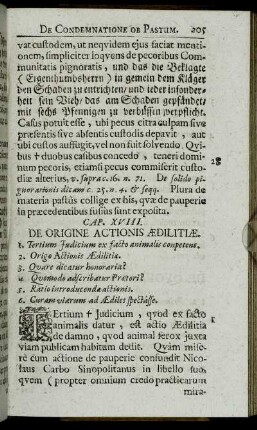 DE CONDEMNATIONE OB PASTUM. 205
vat custodem, ut neqvidem ejus faciat menti-
onem, simpliciter loqvens de pecoribus Com-
munitatis pignoratis, und das die Beklagte
(Eigenthumbsherrn) in gemein dem Kläger
den Schaden zu entrichten/ und ieder insonder-
heit sein Vieh/ das am Schaden gepfändet/
mit sechs Pfennigen zu
Casus potuit esse, ubi pecus citra culpam sive
præsentis sive absentis custodis depavit, aut
ubi custos aufugit, vel non fuit solvendo. Qvi-
bus † duobus casibus concedo, teneri domi-
num pecoris, etiamsi pecus commiserit custo-
diæ alterius, v. supra c. 16. n. 71. De solido pi-
gnorationis dicam c. 25. n. 4. & seqq. Plura de
materia pastus collige ex his, qvæ de pauperie
in præcedentibus fusius sunt exposita.
CAP. XVIII.
DE ORIGINE ACTIONIS ÆDILITIÆ.
1. Tertium Judicium ex facto animalis competens.
2. Origo Actionis Ædilitia.
3. Qvare dicatur honoraria?
4. Qvomodo adscribatur Prætori?
5. Ratio introducenda actionis.
6. Curam viarum ad Ædiles spectasse.
TErtium † Judicium, qvod ex facto
animalis datur, est actio Ædilitia
de damno, qvod animal ferox juxta
viam publicam habitum dedit. Qvàm mise-
rè cum actione de pauperie confundit Nico-
laus Carbo Sinopolitanus in libello suo,
qvem (propter omnium credo practicarum
mira-